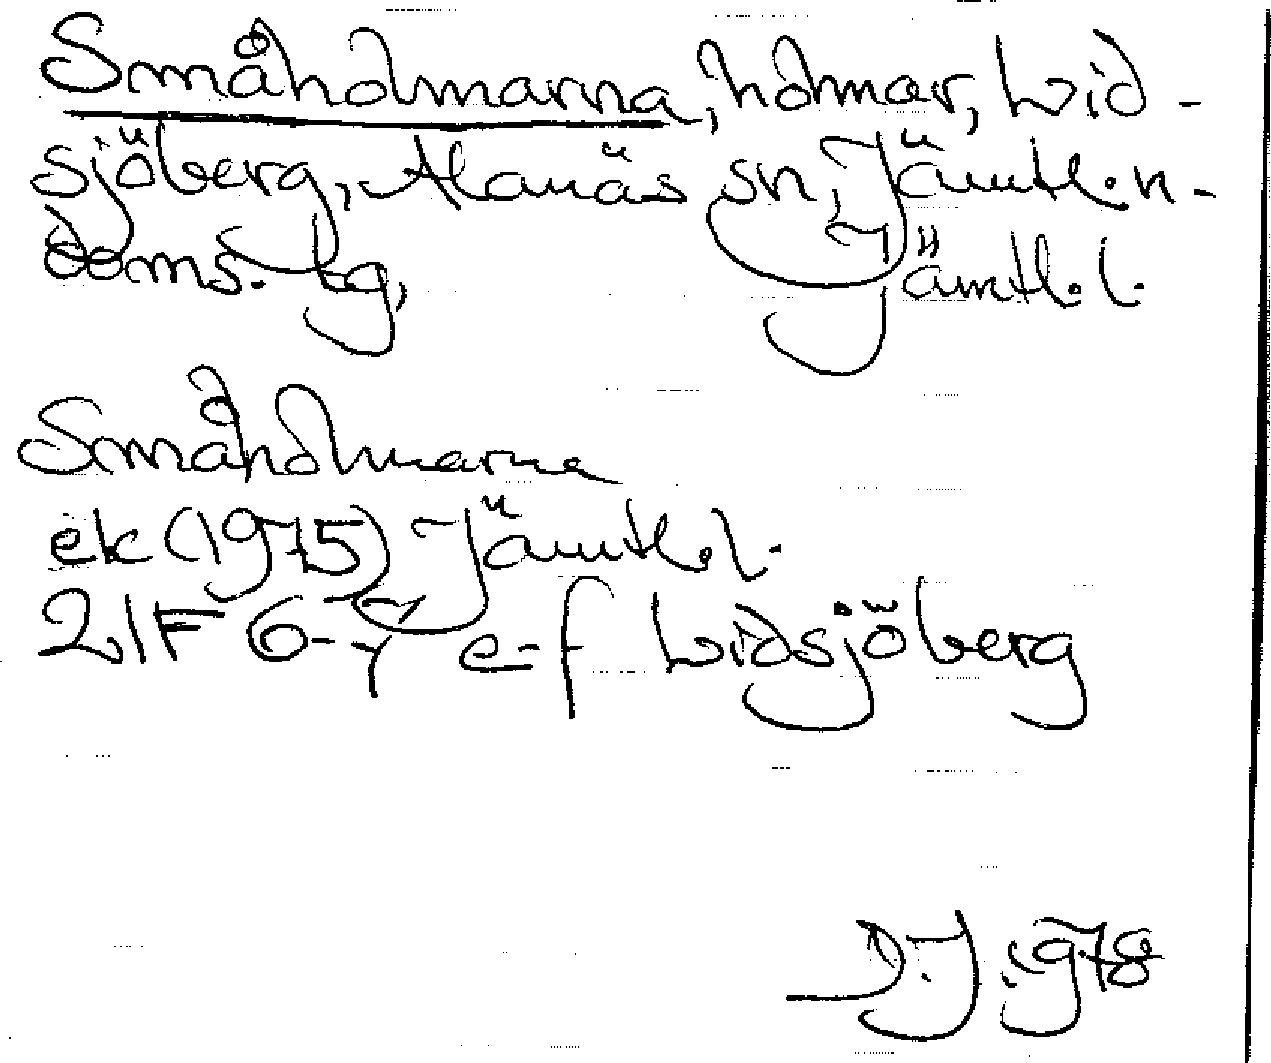 Småholmarna, holmar, Lid-
sjöberg, Alanäs sn, Jämtl. n-
doms. tg, Jämtl. l.
Småholmarna
ek (1975) Jämtl. l.
21F 6-7 e-f Lidsjöberg
D.J. 1978